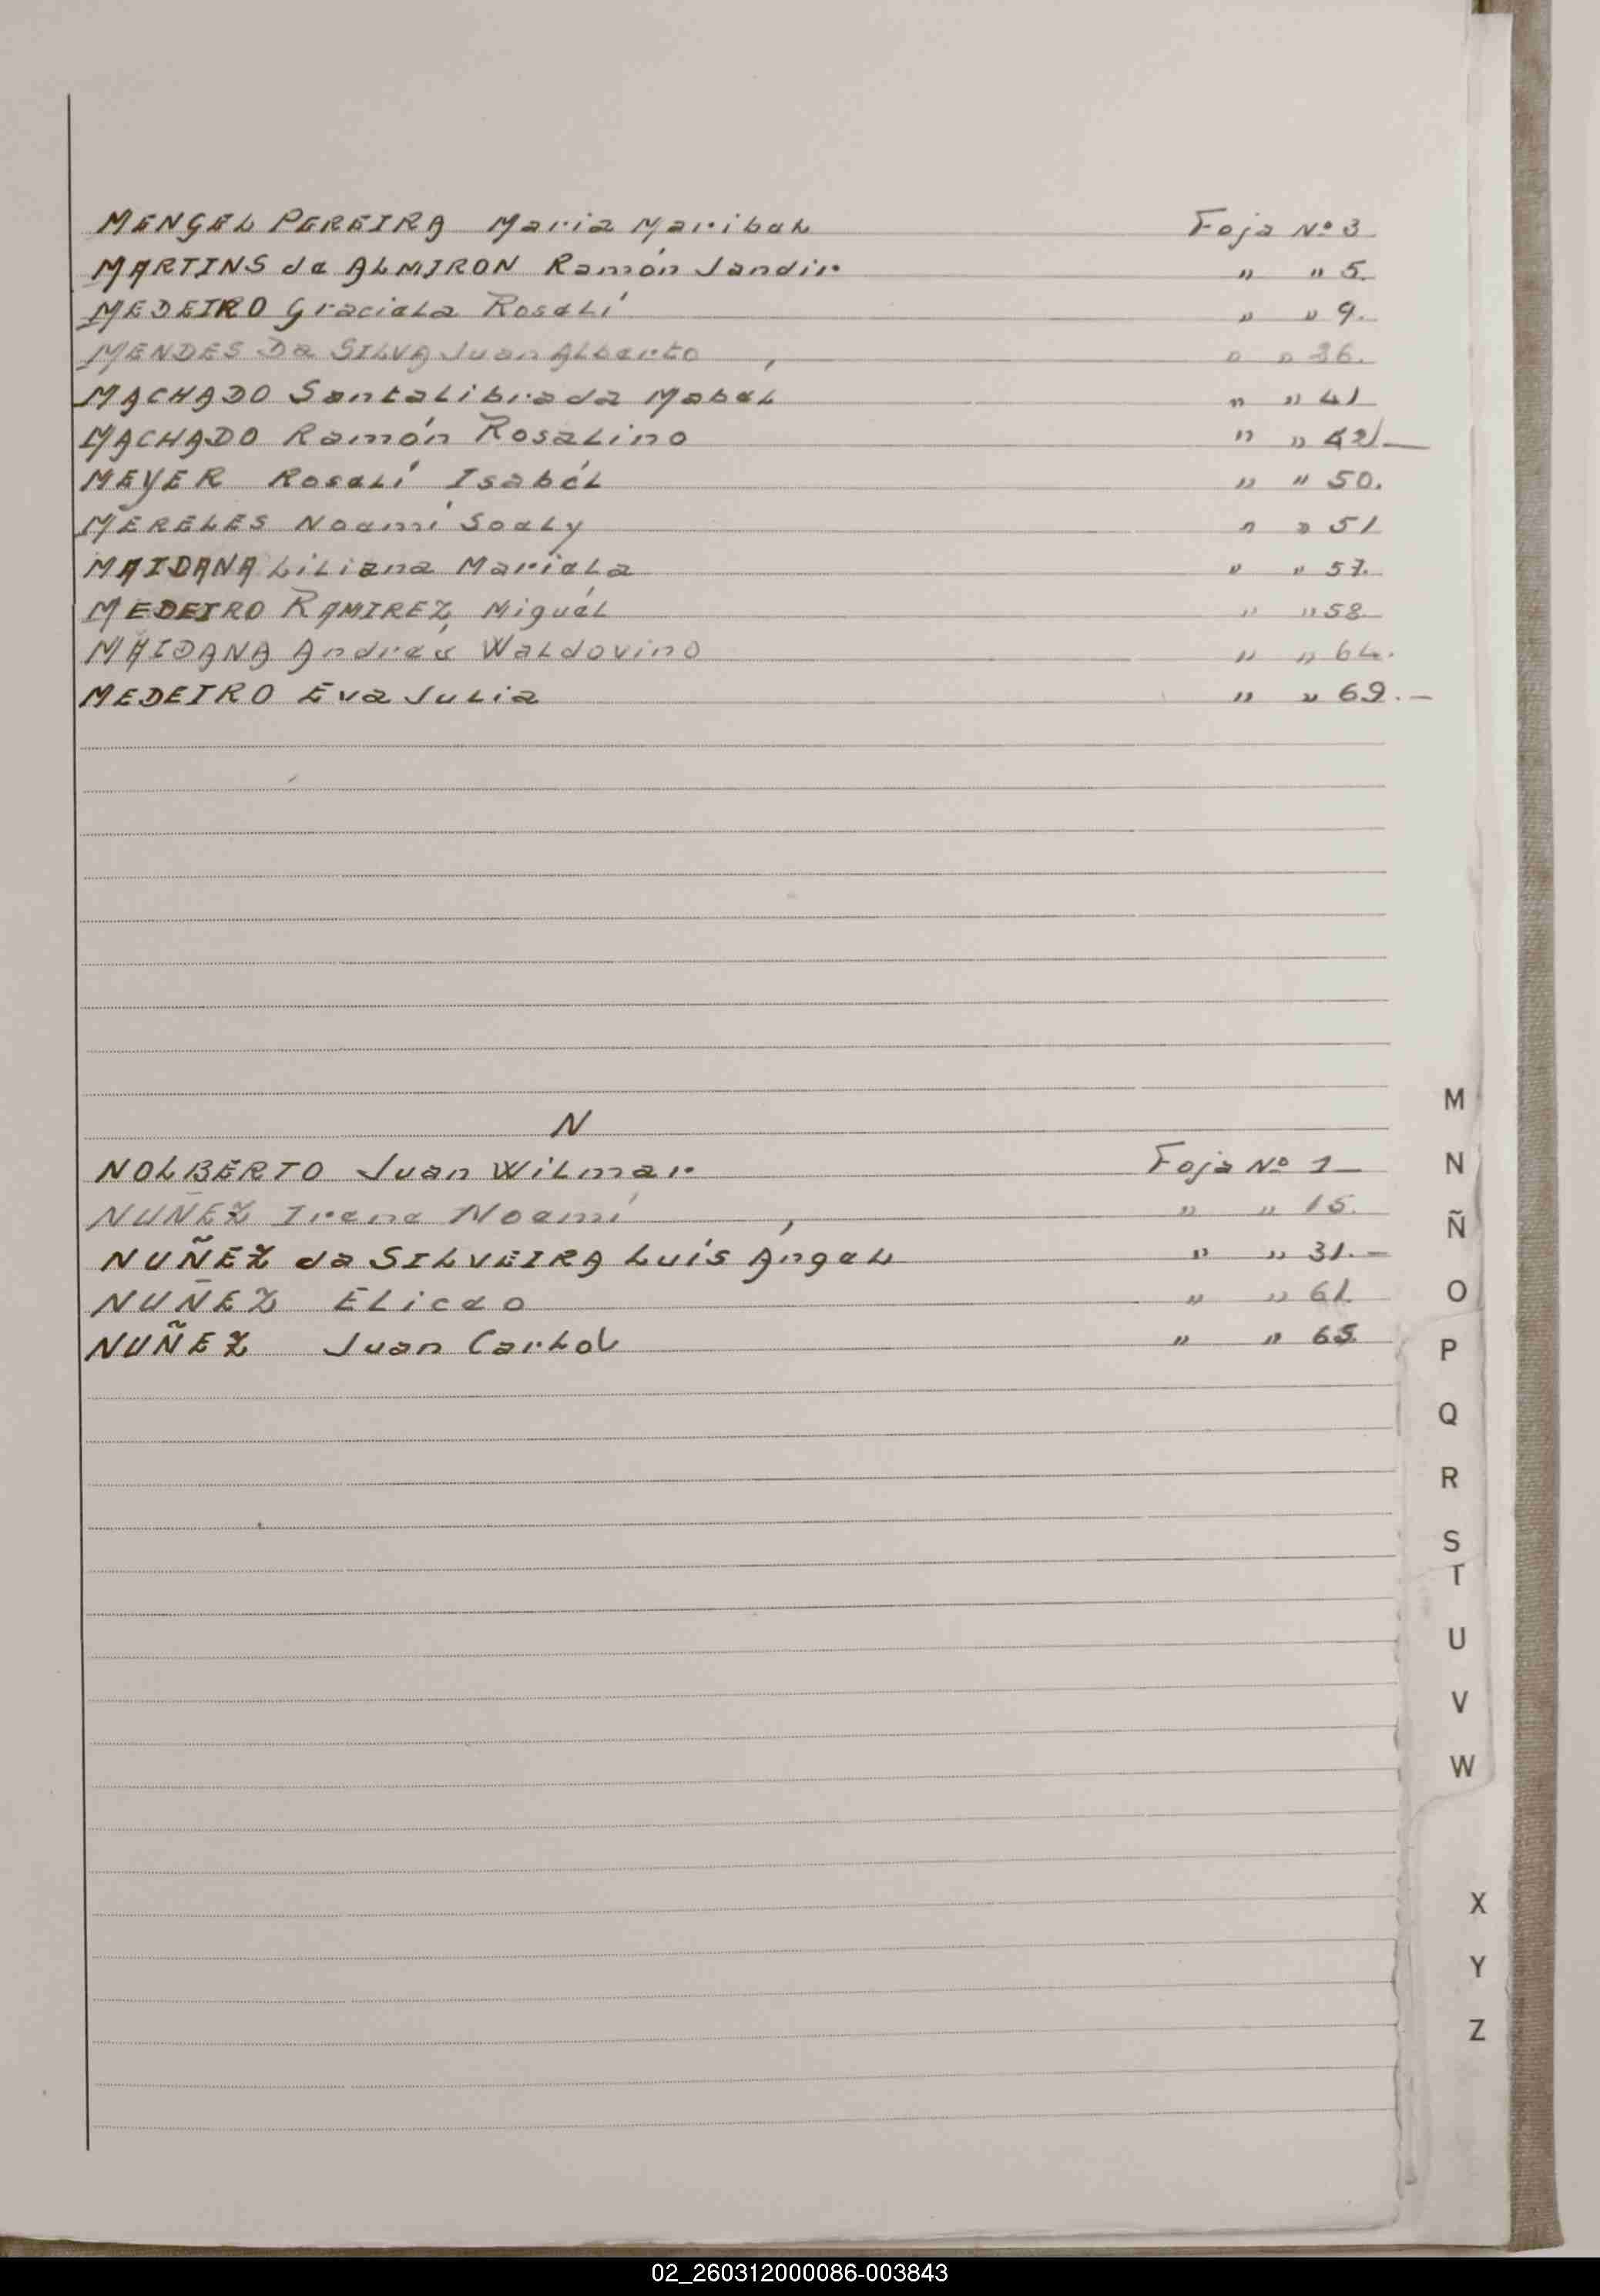 MENGEL PEREIRA Maria Maribel Foja Nº 3
MARTINS de ALMIRON Ramón Jandir " " 5.
MEDEIRO Graciela Roselí " " 9.
MENDES Da SILVA Juan Alberto " " 36.
MACHADO Santa Librada Mabel " " 41
MACHADO Ramón Rosalino " " 42/—
MEYER Roselí Isabél " " 50.
MERELES Noemí Soely " " 51
MAIDANA Liliana Mariéla " " 57.
MEDEIRO RAMIREZ Miguél " " 58
MAIDANA Andres Waldovino " " 64.
MEDEIRO Eva Julia " " 69.—
N
NOLBERTO Juan Wilmar Foja Nº 1
NUÑEZ Irene Noemí " " 15.
NUÑEZ da SILVEIRA Luís Ángel " " 31.—
NUÑEZ Eliceo " " 61.
NUÑEZ Juan Carlos " " 65.
M
N
Ñ
O
P
Q
R
S
T
U
V
W
X
Y
Z
02_260312000086-003843